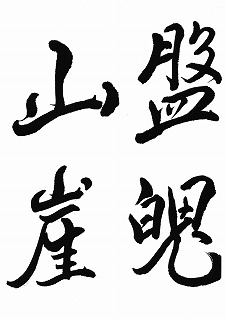 盤魄
山崖